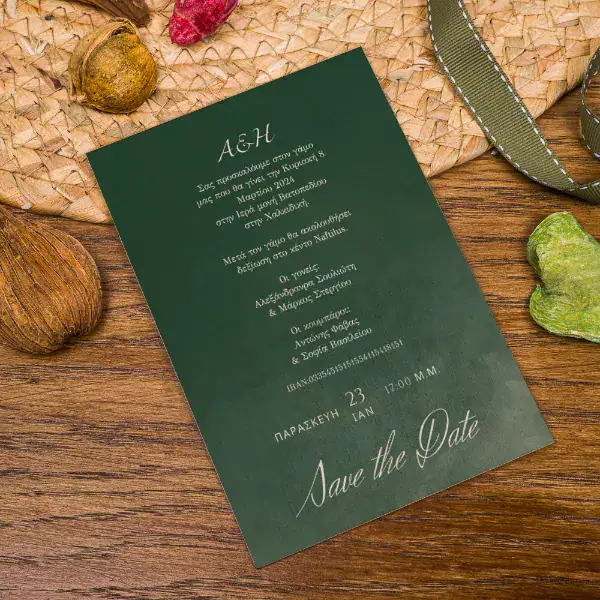 A&H
Σας προσκαλούμε στον γάμο
μας που θα γίνει την Κυριακή 8
Μαρτίου 2024
στην Ιερά μονή Βατοπεδίου
στην Χαλκιδική.
Μετά τον γάμο θα ακολουθήσει
δεξίωση στο κέντο Naftilus.
Οι γονείς:
Αλεξάνδρανρα Σουλιώτη
& Μάρκος Στεργίου
Οι κουμπάροι:
Αντώνης Φάβας
& Σοφία Βασιλείου
IBAN:0335435151554154154
ΠΑΡΑΣΚΕΥΗ 23 ΙΑΝ 17:00 Μ.Μ.
Save the Date